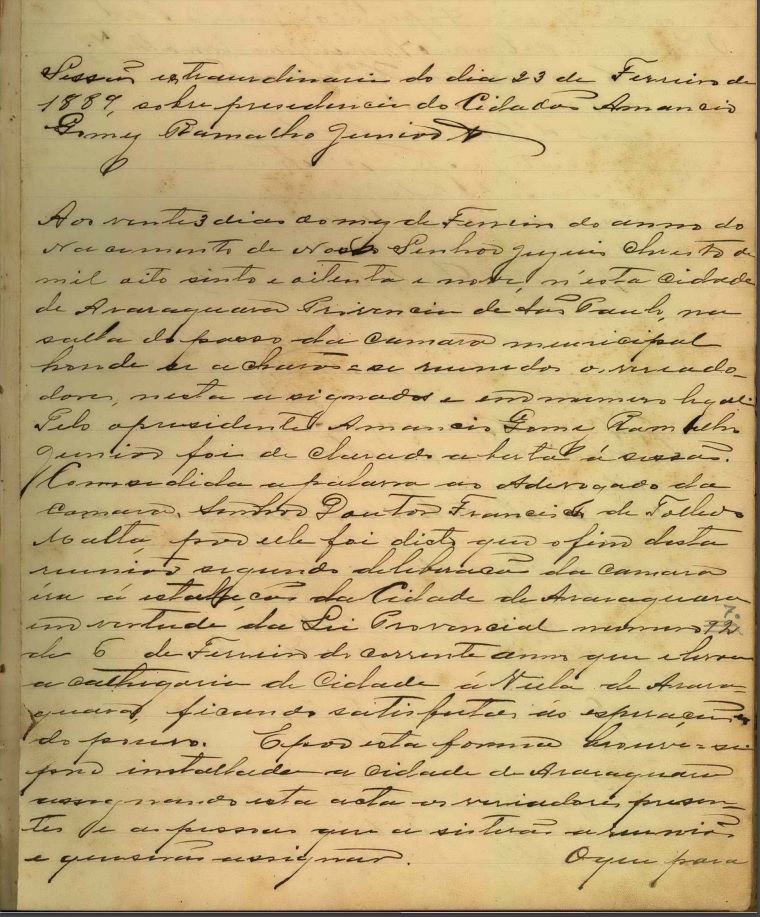 Sessão extraurdinaria do dia 23 de Fevreiro de
1889, sobre presidencia do Cidadão Amancio
Gomes Ramalho Junior
Aos vinte 3 dias do mez de Fevreiro do anno do
Nacemento de Nosso Senhor Jezuis Christo de
mil oito sinto e oitenta e nove, n'esta cidade
de Araraquara Provincia de São Paulo, na
salla do passo da camara municipal
honde se a charão-se reunidos os vereado-
dores, nesta a signados e em numero legal
Pelo o presidente Amancio Gomes Ramalho
Junior foi de clarado aberta á sessão.
Comsedida a palavra ao Advogado da
camara, Senhor Doutor Francisco de Tolledo
Malta, por elle foi dicto que o fim desta
reunião segundo deliberacão da camara
ira á da Cidade de Araraquara
em vertude da Lei Provincial numero 7.
de 6 de Fevreiro do corrente anno que elevou
a cathegoria de Cidade á Villa de Arara-
quara, ficando satisfeitas as esperacões
do povo. E por esta forma houve-se
por installada a cidade de Araraquara
assignando esta acta os veriadores presen-
tes e as pessoas que a sistirão a reunião
e quiserão assignar. O que para